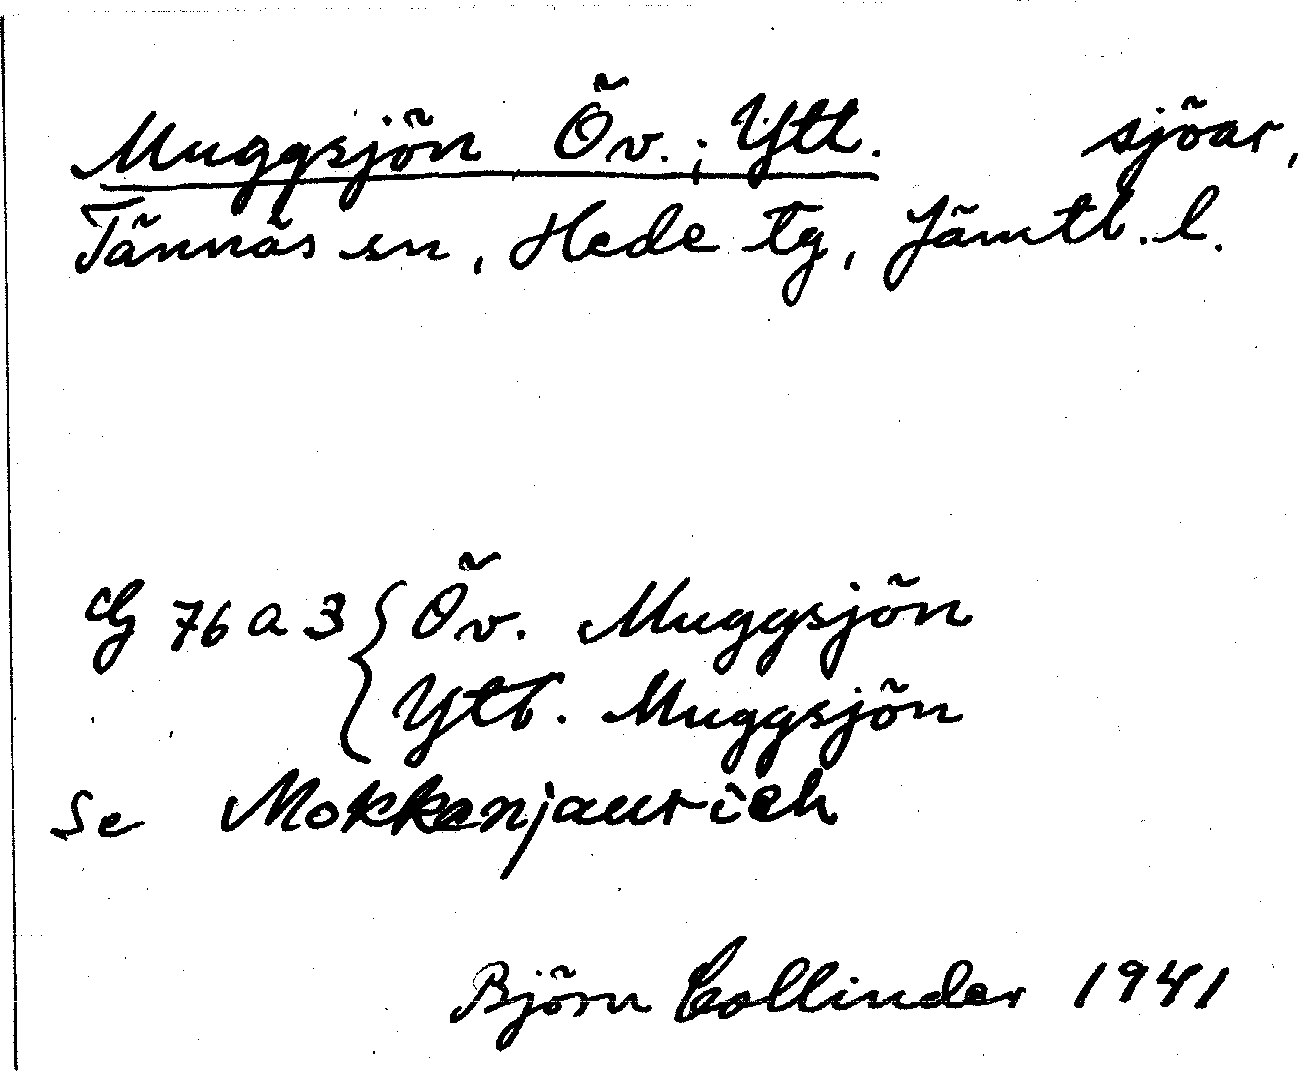 Muggsjön Öv.; Ytt. sjöar,
Tännäs sn, Hede tg, Jämtl. l.
G 76 a 3 { Öv. Muggsjön
Ytt. Muggsjön
Se Mokkenjaurieh
Björn Collinder 1941